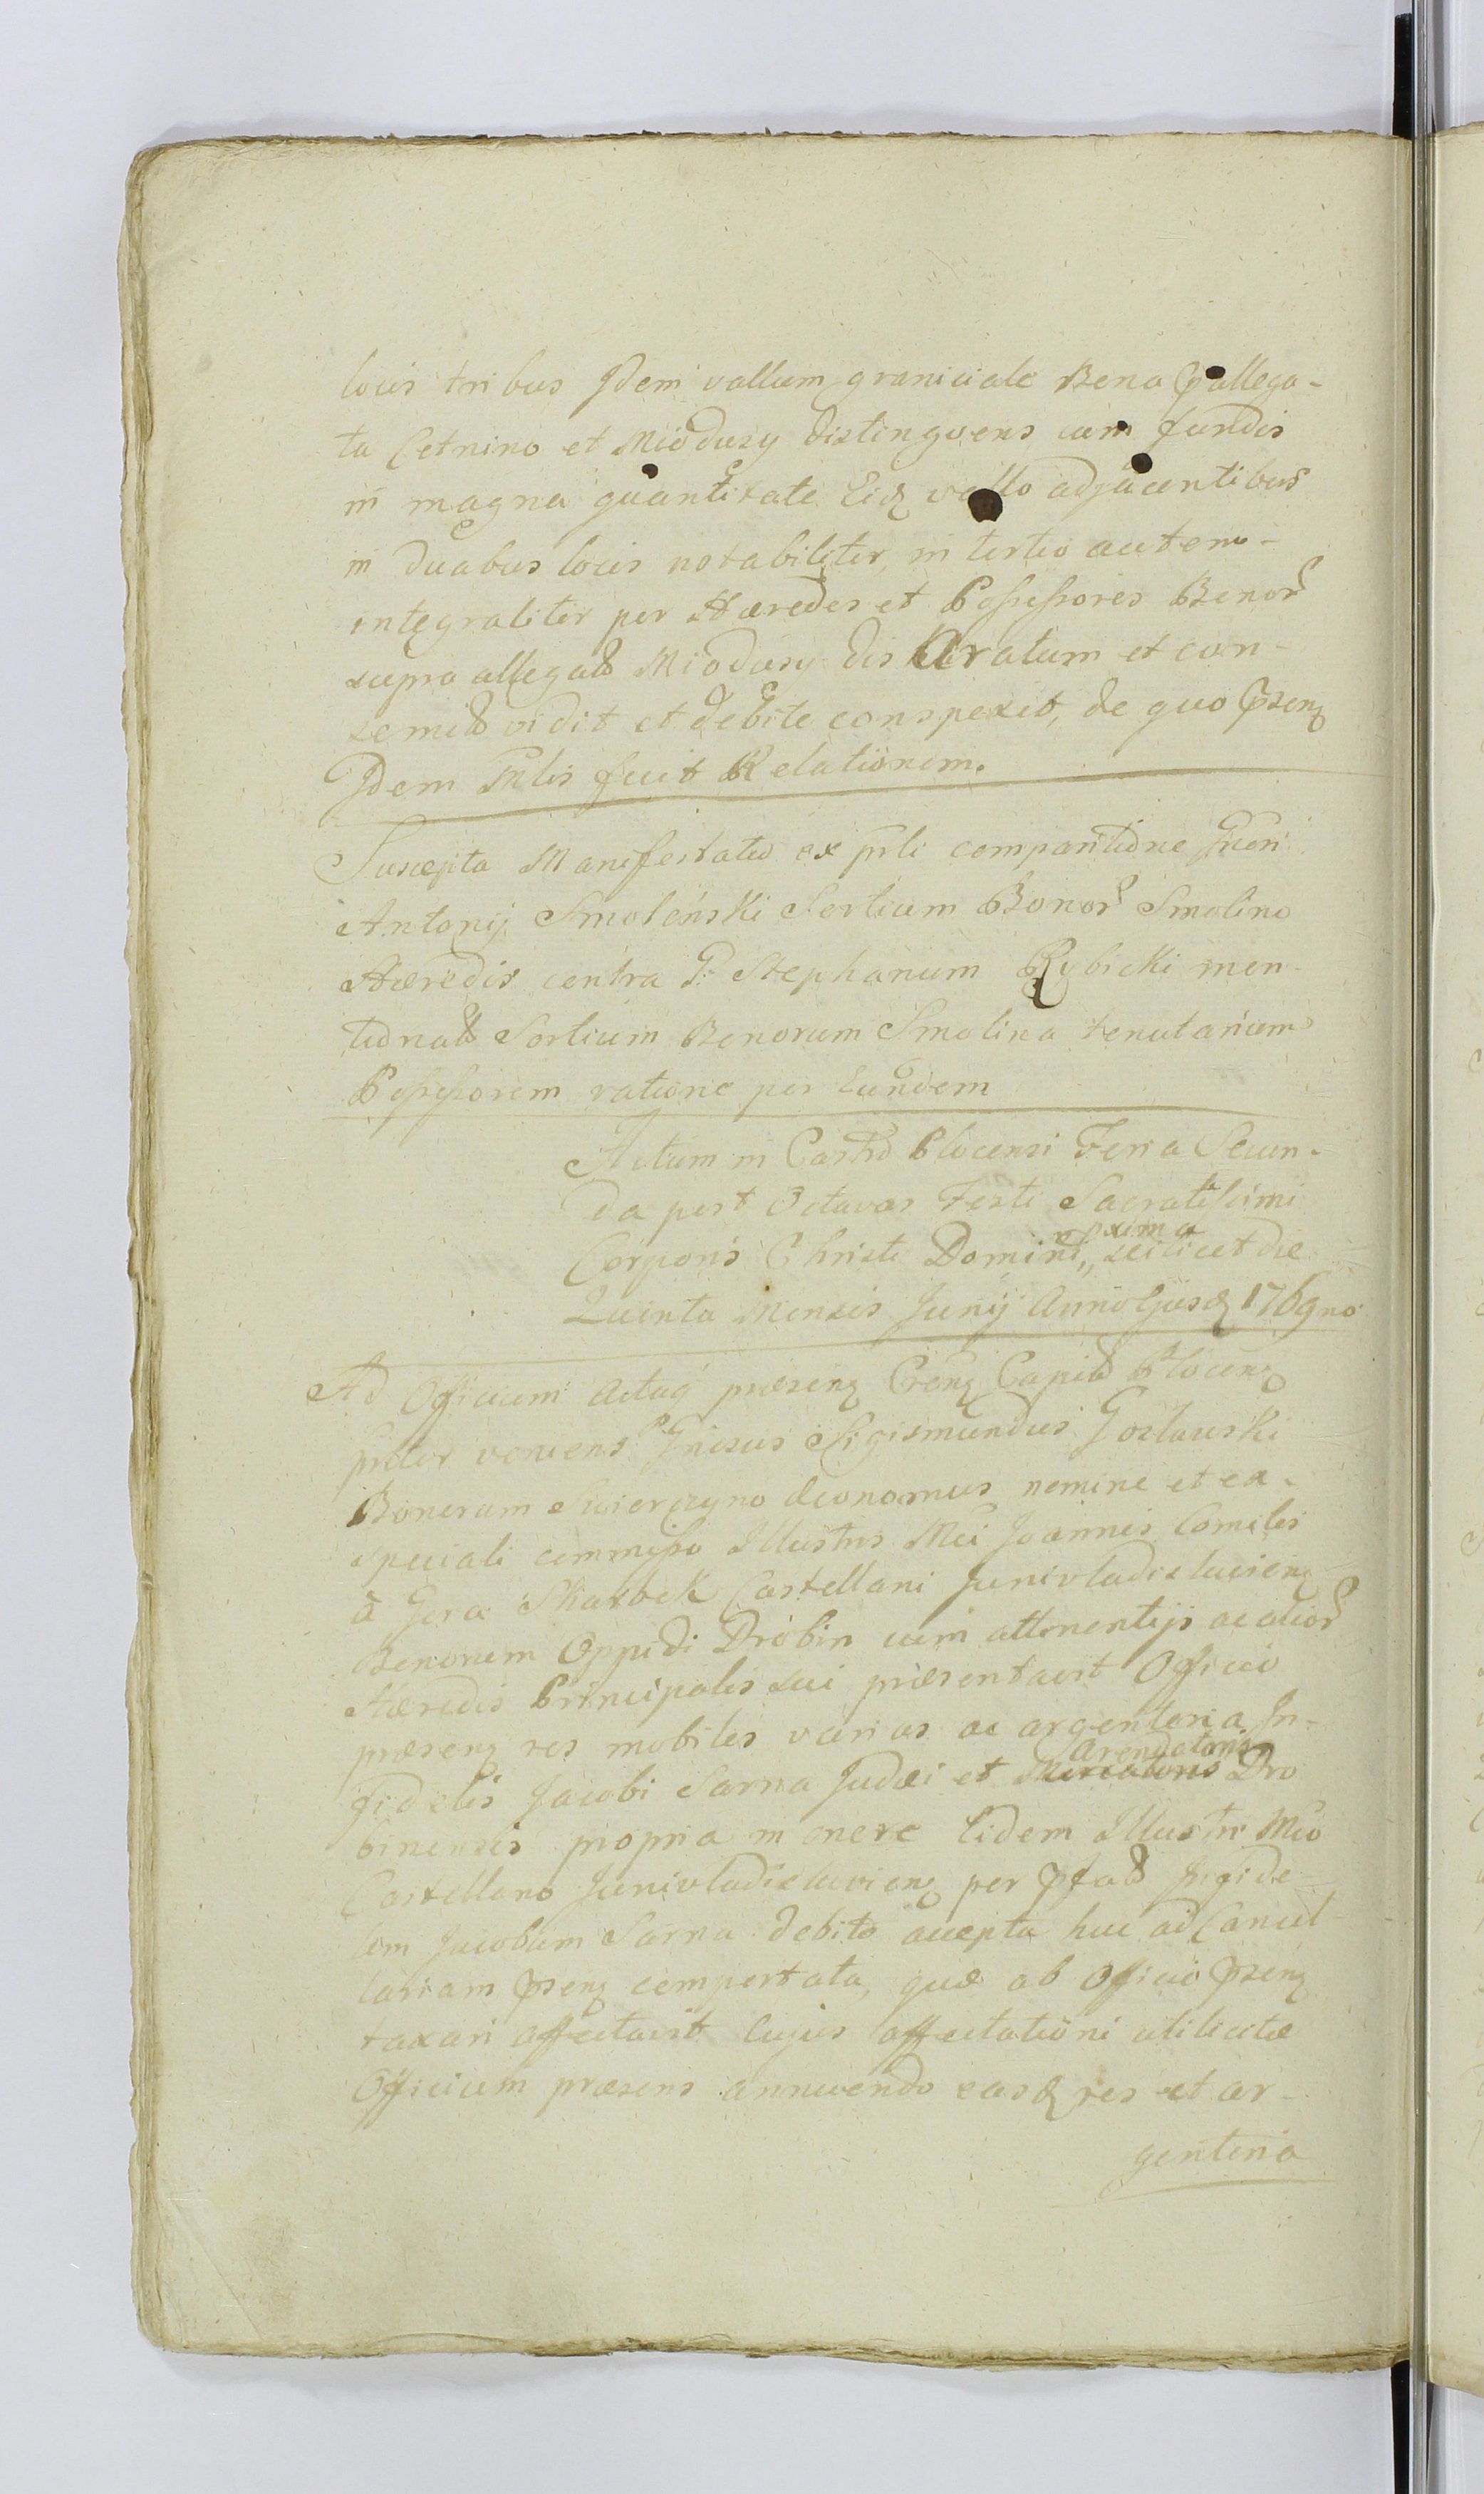 locis tribus Idem vallum graniciale Bona p̄allega-
ta Cetnino et Miodusy distingvens cum fundis
in magna quantitate Eidȝ vallo adjacentibus
in duabus locis notabiliter, in tertio autem-
integraliter per Hæredes et Poſseſsores Bonor
supra allegat Miodusy disAratum et con-
semit vidit et debite conspexit, de quo p̄senȝ
Idem Mlis fecit Relationem.
Suscepta Manifestatio ex p̄rli comparitione Gnen
Antonij Smoleński Sortium Bonor Smolino
Hæredis contra G. Stephanum Rybicki men
tionat Sortium Bonorum Smolino tenutarium
Poſseſsorem ratione per Eundem
Actum in Castro Plocensi Feria Secun-
da post Octavas Festi Sacratiſsimi
Corporis Christi Domini,, pxima scilicet die
Quinta Mensis Junij Anno Ejusdȝ 1769no
Ad Officium Actaq́ præsenȝ Crenȝ Capit Plocenȝ
pnlter veniens Gnrosus Sigismundus Gosławski
Bonorum Swierczyno Œconomus nomine et ex-
speciali commiſso Illustris Mci Joannis Comitis
à Gora Skarbek Castellani Junivladislavienȝ
Bonorum Oppidi Drobin cum attinentijs ac alior
Hæredis Principalis sui præsentavit Officio
præsenȝ res mobiles varias ac argenteria In-
fidelis Jacobi Sarna Judæi et Mercatoris Arendatoris Dro
binensis propria in onere Eidem Illustri Mco
Castellano Junivladislavienȝ per p̄fat Infide
lem Jacobum Sarna debito accepta huc ad Cancel
lariam p̄senȝ comportata, quæ ab Officio p̄senȝ
taxari affectavit cujus affectationi utilicitæ
Officium præsens annuendo easdȝ res et ar-
genteria